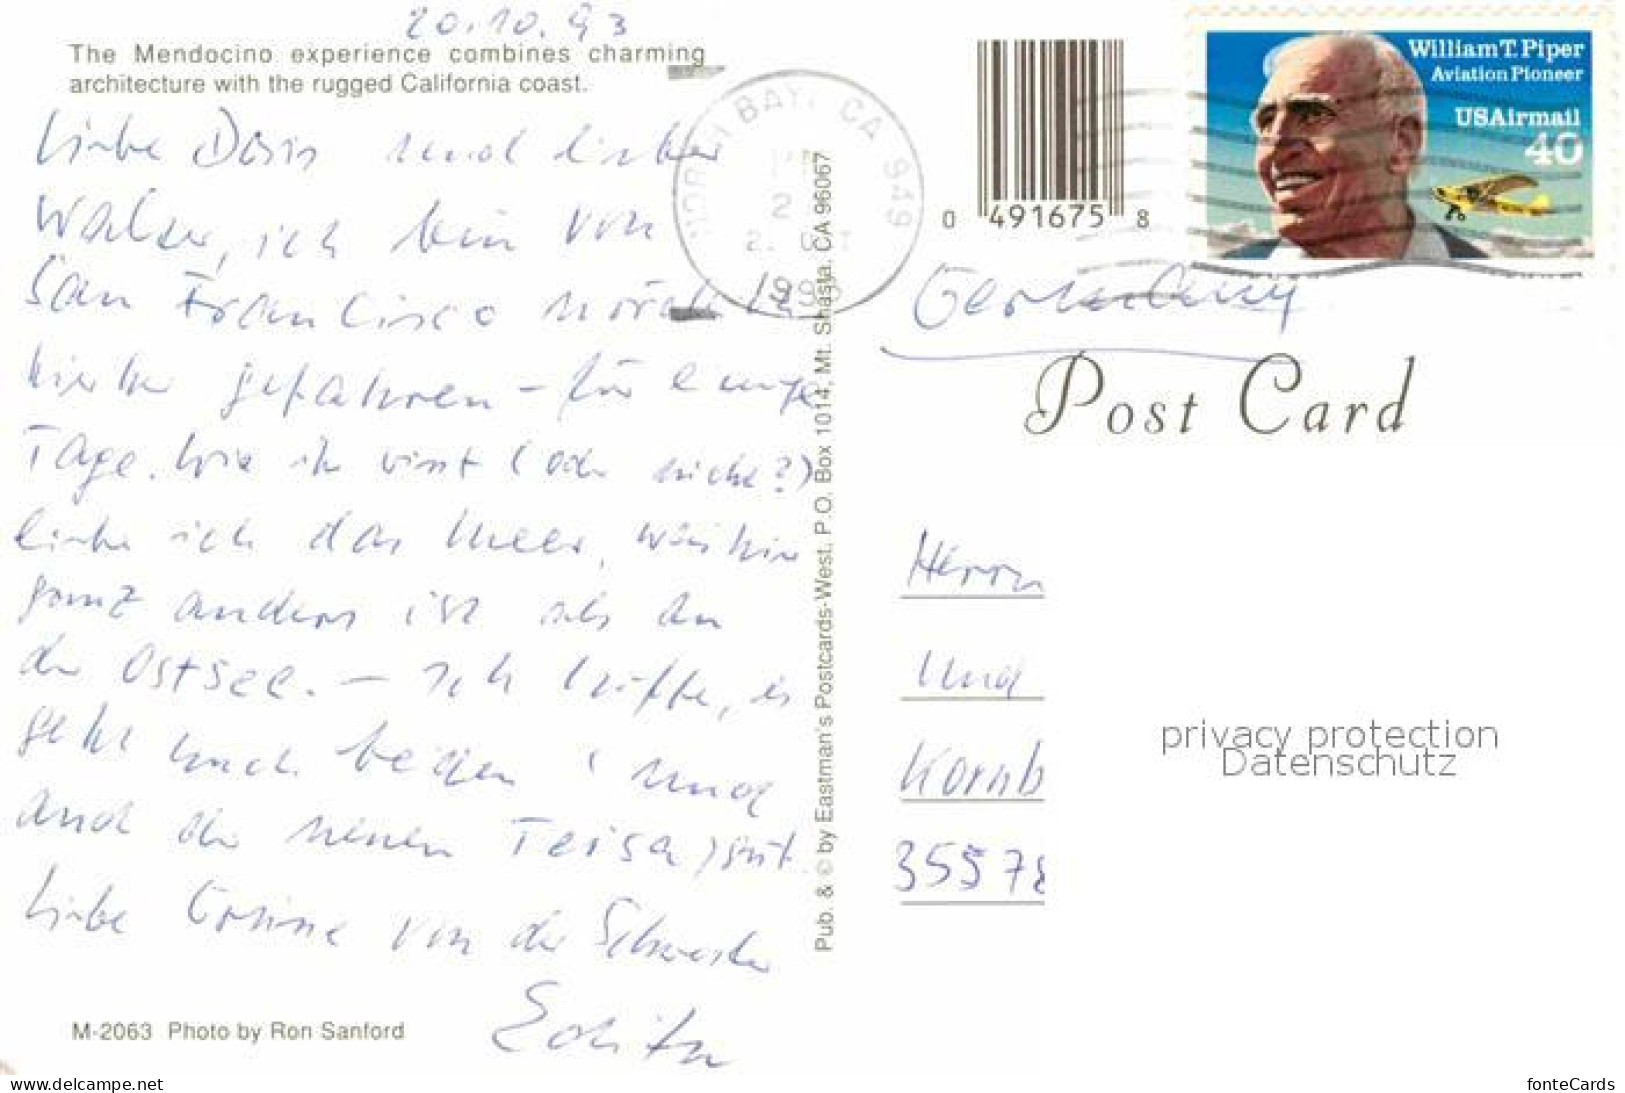 20.10.93
The Mendocino experience combines charming
architecture with the rugged California coast.
Liebe Doris und lieber
Walter, ich bin von
San Francisco nördlich
hierher gefahren - für einige
Tage. Wie ihr wisst (oder nicht?)
liebe ich das Meer,
ganz anders ist als an
der Ostsee. - Ich hoffe, es
geht euch beiden (und
auch der neuen ) gut.
Liebe Grüsse von der Schwester
M-2063 Photo by Ron Sanford
NORTH BAY, CA 949
Pub. & © by Eastman's Postcards-West, P.O. Box 1014, Mt. Shasta, CA 96067
0 491675 8
William T. Piper
Aviation Pioneer
USAirmail
40
Germany
Post Card
Herrn
und
Kornb
35578
privacy protection
Datenschutz
www.delcampe.net
fonteCards